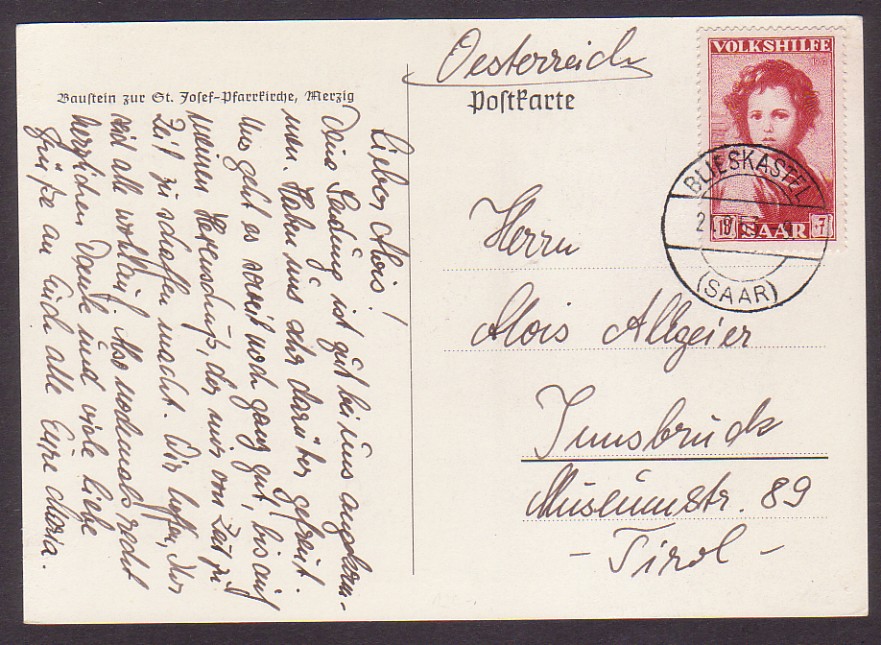 Baustein zur St. Josef-Pfarrkirche, Merzig
Lieber Alois!
Deine Sendung ist gut bei uns angekom-
men. Haben uns sehr darüber gefreut.
Uns geht es soweit noch ganz gut, bis auf
meinen Hexenschuß, der mir von Zeit zu
Zeit zu schaffen macht. Wir hoffen, Ihr
seid all wohlauf. Also nochmals recht
herzlichen Dank und viele liebe
Grüße an Euch alle Eure Maria.
Oesterreich
Postkarte
VOLKSHILFE
7 SAAR 7
BLIESKASTEL
(SAAR)
Herrn
Alois Allgeier
Innsbruck
Museumstr. 89
- Tirol -